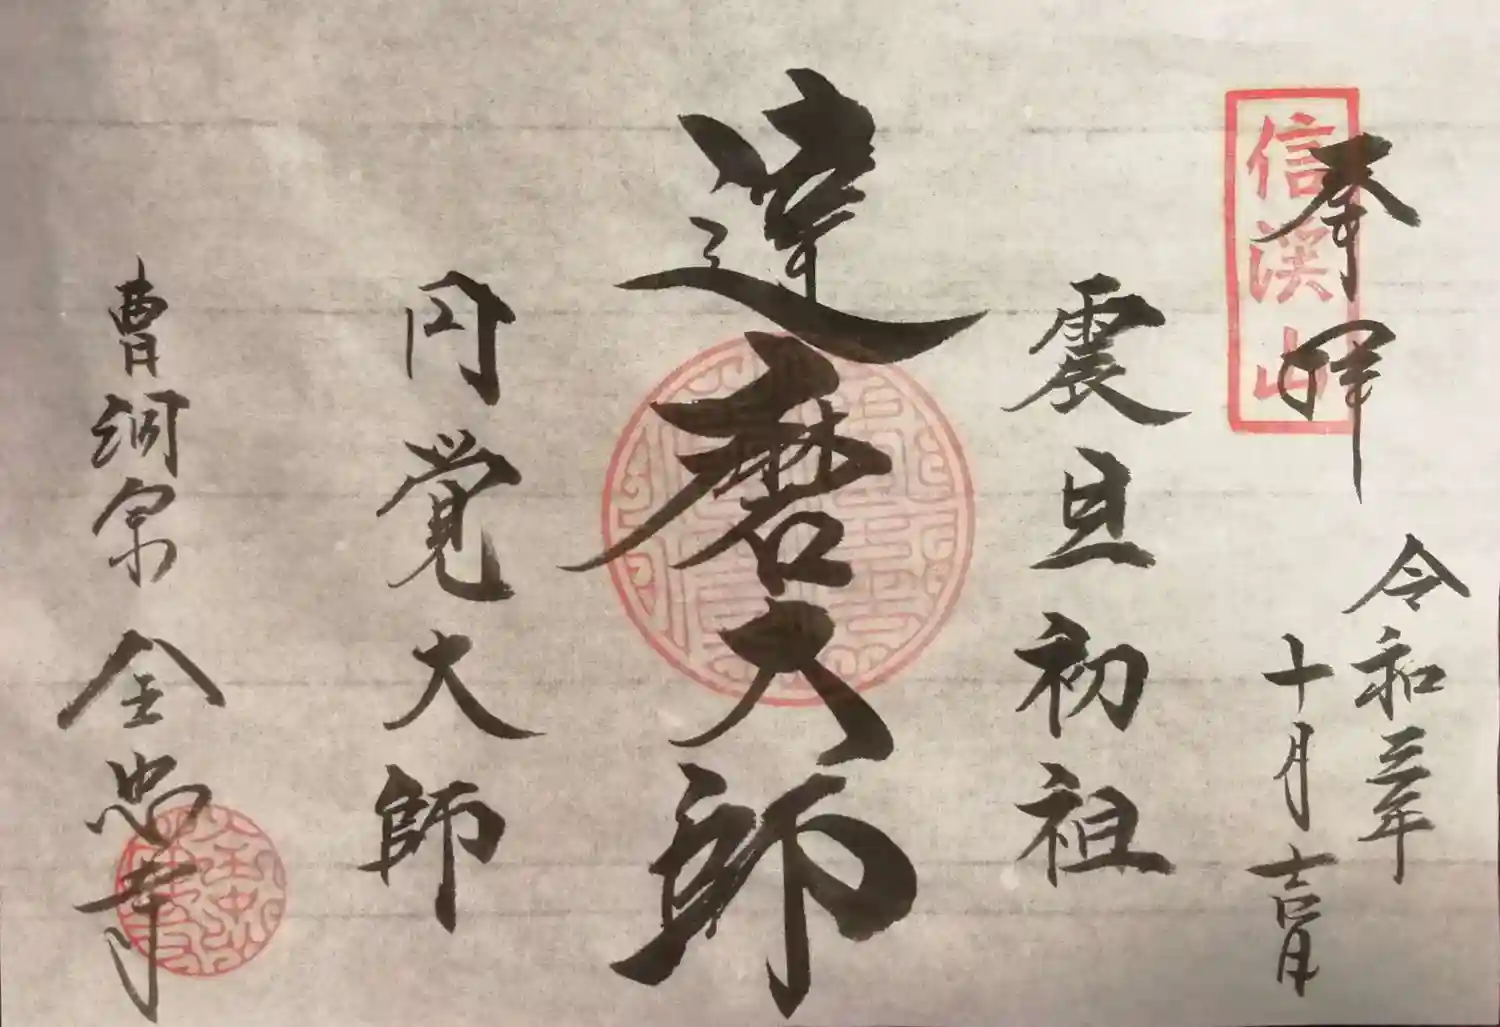 奉拝
信渓山
令和三年
十月吉日
震旦初祖
達磨大師
円覚大師
曹洞宗 全忠寺